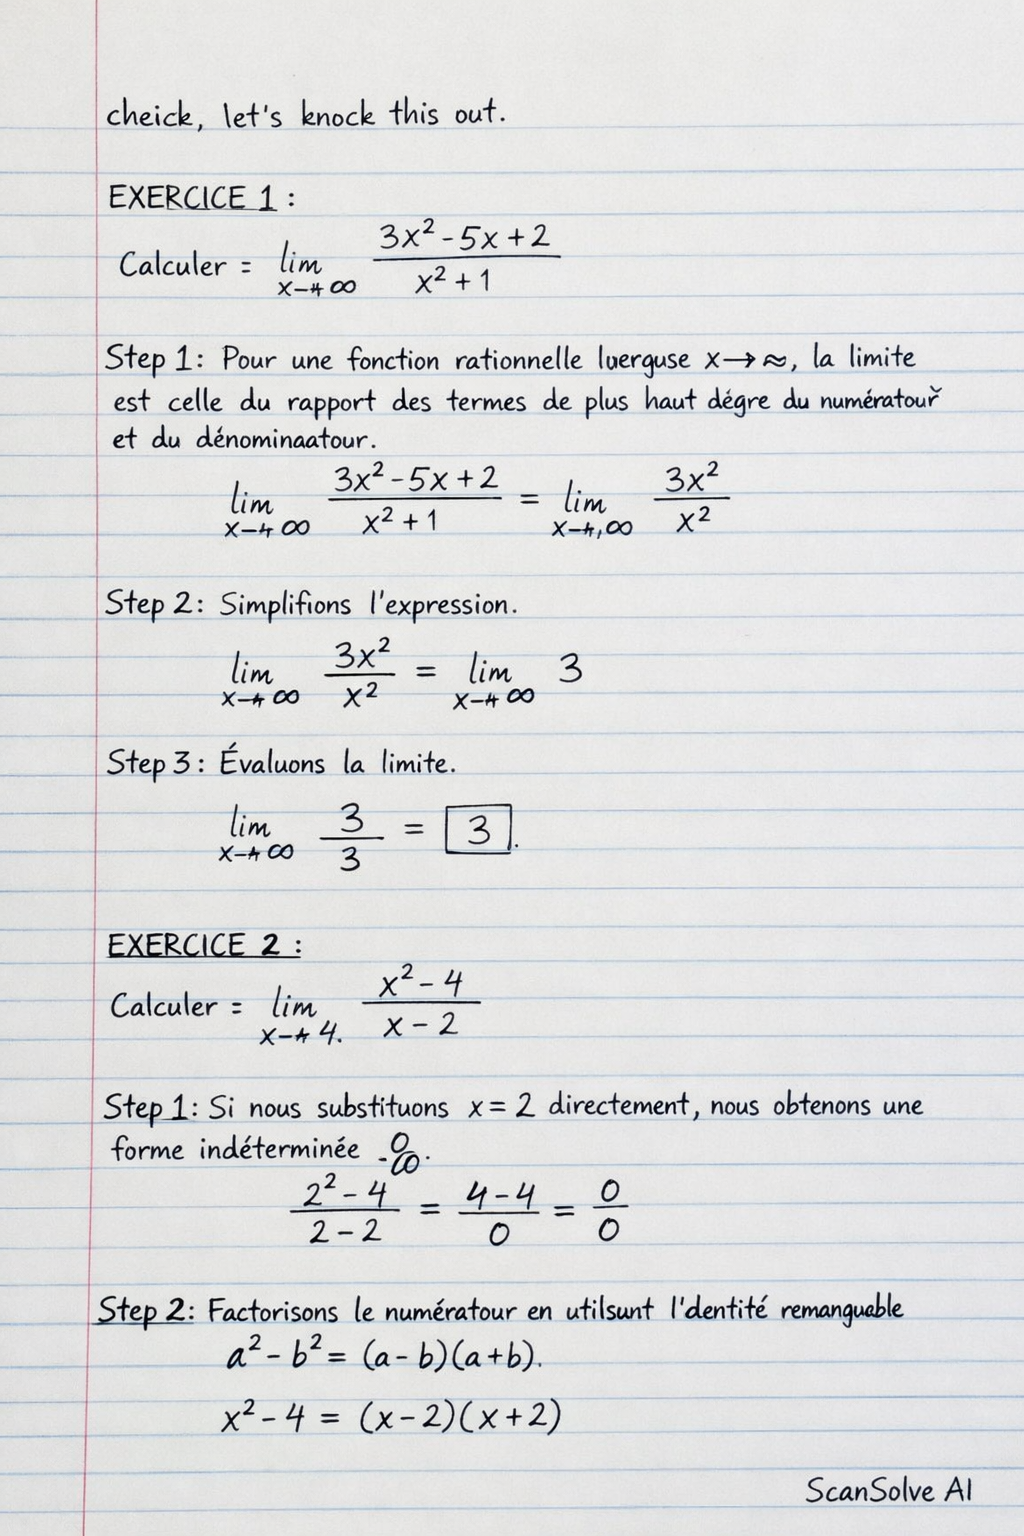 cheick, let's knock this out.
EXERCICE 1 :
Calculer = lim x→+∞ (3x² - 5x + 2)/(x² + 1)
Step 1: Pour une fonction rationnelle luerguse x→≈, la limite
est celle du rapport des termes de plus haut dégre du numératour
et du dénominaatour.
lim x→+∞ (3x² - 5x + 2)/(x² + 1) = lim x→+,∞ 3x²/x²
Step 2: Simplifions l'expression.
lim x→+∞ 3x²/x² = lim x→+∞ 3
Step 3: Évaluons la limite.
lim x→+∞ 3/3 = 3.
EXERCICE 2 :
Calculer = lim x→+ 4. (x² - 4)/(x - 2)
Step 1: Si nous substituons x = 2 directement, nous obtenons une
forme indéterminée
(2² - 4)/(2 - 2) = (4 - 4)/0 = 0/0
Step 2: Factorisons le numératour en utilsunt l'dentité remanguable
a² - b² = (a - b)(a + b).
x² - 4 = (x - 2)(x + 2)
ScanSolve AI